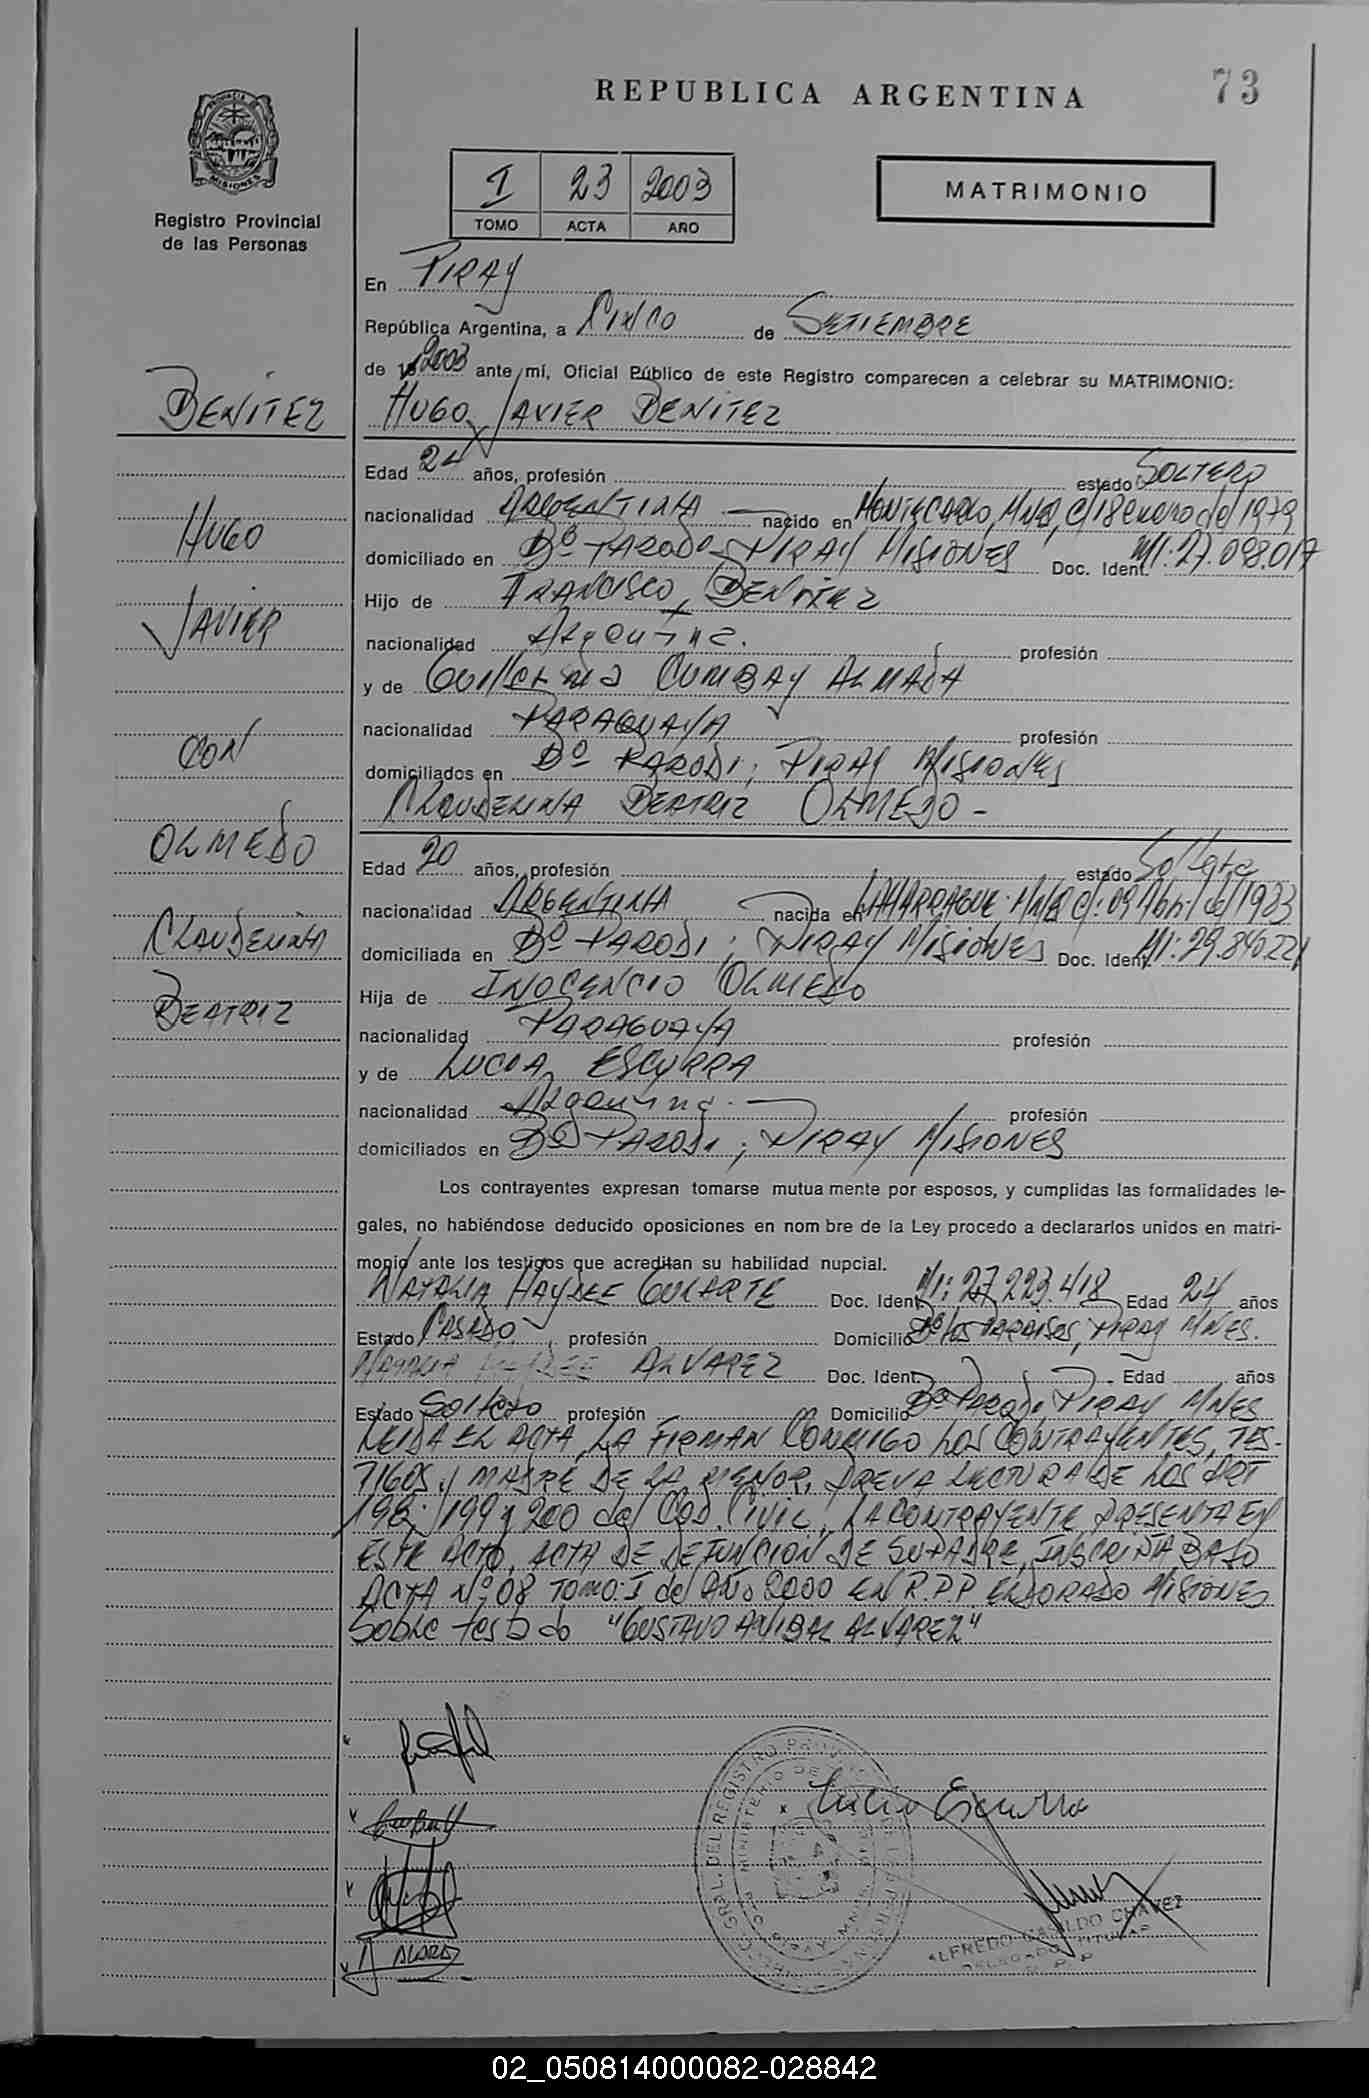 REPUBLICA ARGENTINA
73
MISIONES
Registro Provincial
de las Personas
I 23 2003
TOMO ACTA AÑO
MATRIMONIO
En PIRAY
República Argentina, a CINCO de SETIEMBRE
de 2003 ante mí, Oficial Público de este Registro comparecen a celebrar su MATRIMONIO:
BENITEZ
HUGO JAVIER BENITEZ
Edad 24 años, profesión estado SOLTERO
HUGO
nacionalidad ARGENTINA nacido en MONTECARLO, MNES, el 18 enero del 1979
domiciliado en Bº PARODI, PIRAY MISIONES Doc. Ident. MI: 27.098.017
JAVIER
Hijo de FRANCISCO BENITEZ
nacionalidad Argentina. profesión
y de Guillerma CUMBAY ALMADA
CON
nacionalidad PARAGUAYA profesión
domiciliados en Bº PARODI; PIRAY MISIONES
CLAUDELINA BEATRIZ OLMEDO -
OLMEDO
Edad 20 años, profesión estado Soltera
CLAUDELINA
nacionalidad ARGENTINA nacida en LAHARRAGUE MNES el: 09 Abril del 1983
domiciliada en Bº PARODI; PIRAY MISIONES Doc. Ident. MI: 29.840.221
BEATRIZ
Hija de INOCENCIO OLMEDO
nacionalidad PARAGUAYA profesión
y de LUCIA ESCURRA
nacionalidad Argentina. profesión
domiciliados en Bº PARODI; PIRAY MISIONES
Los contrayentes expresan tomarse mutua mente por esposos, y cumplidas las formalidades le-
gales, no habiéndose deducido oposiciones en nom bre de la Ley procedo a declararlos unidos en matri-
monio ante los testigos que acreditan su habilidad nupcial.
NATALIA HAYDEE GULARTE Doc. Ident. MI: 27.223.418 Edad 24 años
Estado CASADO profesión Domicilio Bº LOS PARAISOS, PIRAY MNES.
ALVAREZ Doc. Ident. Edad años
Estado Soltero profesión Domicilio Bº PARODI, PIRAY MNES
LEIDA EL ACTA, LA FIRMAN CONMIGO LOS CONTRAYENTES, TES-
TIGOS y MADRE DE LA MENOR, PREVIA LECTURA DE LOS ART
198, 199 y 200 del COD. CIVIL. LA CONTRAYENTE PRESENTA EN
ESTE ACTO, ACTA DE DEFUNCION DE SU PADRE, INSCRIPTA BAJO
ACTA Nº: 08 TOMO: I del AÑO 2000 EN R.P.P. ELDORADO MISIONES
Sobre testado "GUSTAVO ANIBAL ALVAREZ"
Lucia Escurra
ALFREDO CASILDO CHAVEZ
DELEGADO TITULAR
R. P. P.
02_050814000082-028842